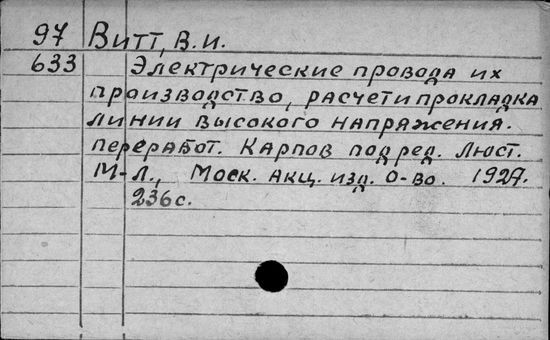 97 Витт, В. И.
633 Электрические провода их
производство, расчет и прокладка
линии высокого напряжения.
переработ. Карпов под ред. Люст.
М-Л., Моск. акц. изд. о-во. 1927.
236 с.